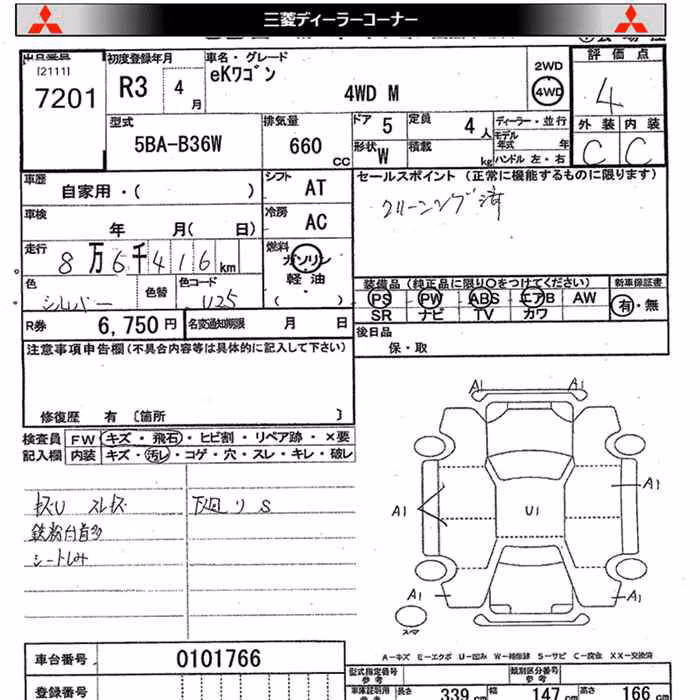 三菱ディーラーコーナー
[2111]
7201
初度登録年月
R3 4 月
車名・グレード
eKワゴン
4WD M
2WD
4WD
評価点
4
外装 内装
C C
型式
5BA-B36W
排気量
660 cc
ドア 5
定員 4 人
形状 W
積載 kg
ディーラー・並行
モデル年式 年
ハンドル 左・右
車歴
自家用・( )
シフト
AT
車検
年 月( 日)
冷房
AC
走行
8万6千416km
燃料
ガソリン
軽油
( )
色
シルバー
色替
色コード
U25
R券 6,750円
名変通知期限 月 日
セールスポイント (正常に機能するものに限ります)
クリーニング済
装備品 (純正品に限り〇をつけてください)
PS PW ABS エアB AW
SR ナビ TV カワ
新車保証書
有・無
後日品
保・取
注意事項申告欄(不具合内容等は具体的に記入して下さい)
修復歴 有 〔箇所 〕
検査員
記入欄
FW キズ・飛石・ヒビ割・リペア跡・×要
内装 キズ・汚レ・コゲ・穴・スレ・キレ・破レ
下廻りS
鉄粉台首多
シートしみ
A1 A1
A1 A1
U1
A1 A1
スペア
A-キズ E-エクボ U-凹み W-補修跡 S-サビ C-腐食 XX-交換済
車台番号 0101766
登録番号
型式指定番号
参考
類別区分番号
参考
車庫証明用
長さ 339 cm 幅 147 cm 高さ 166 cm